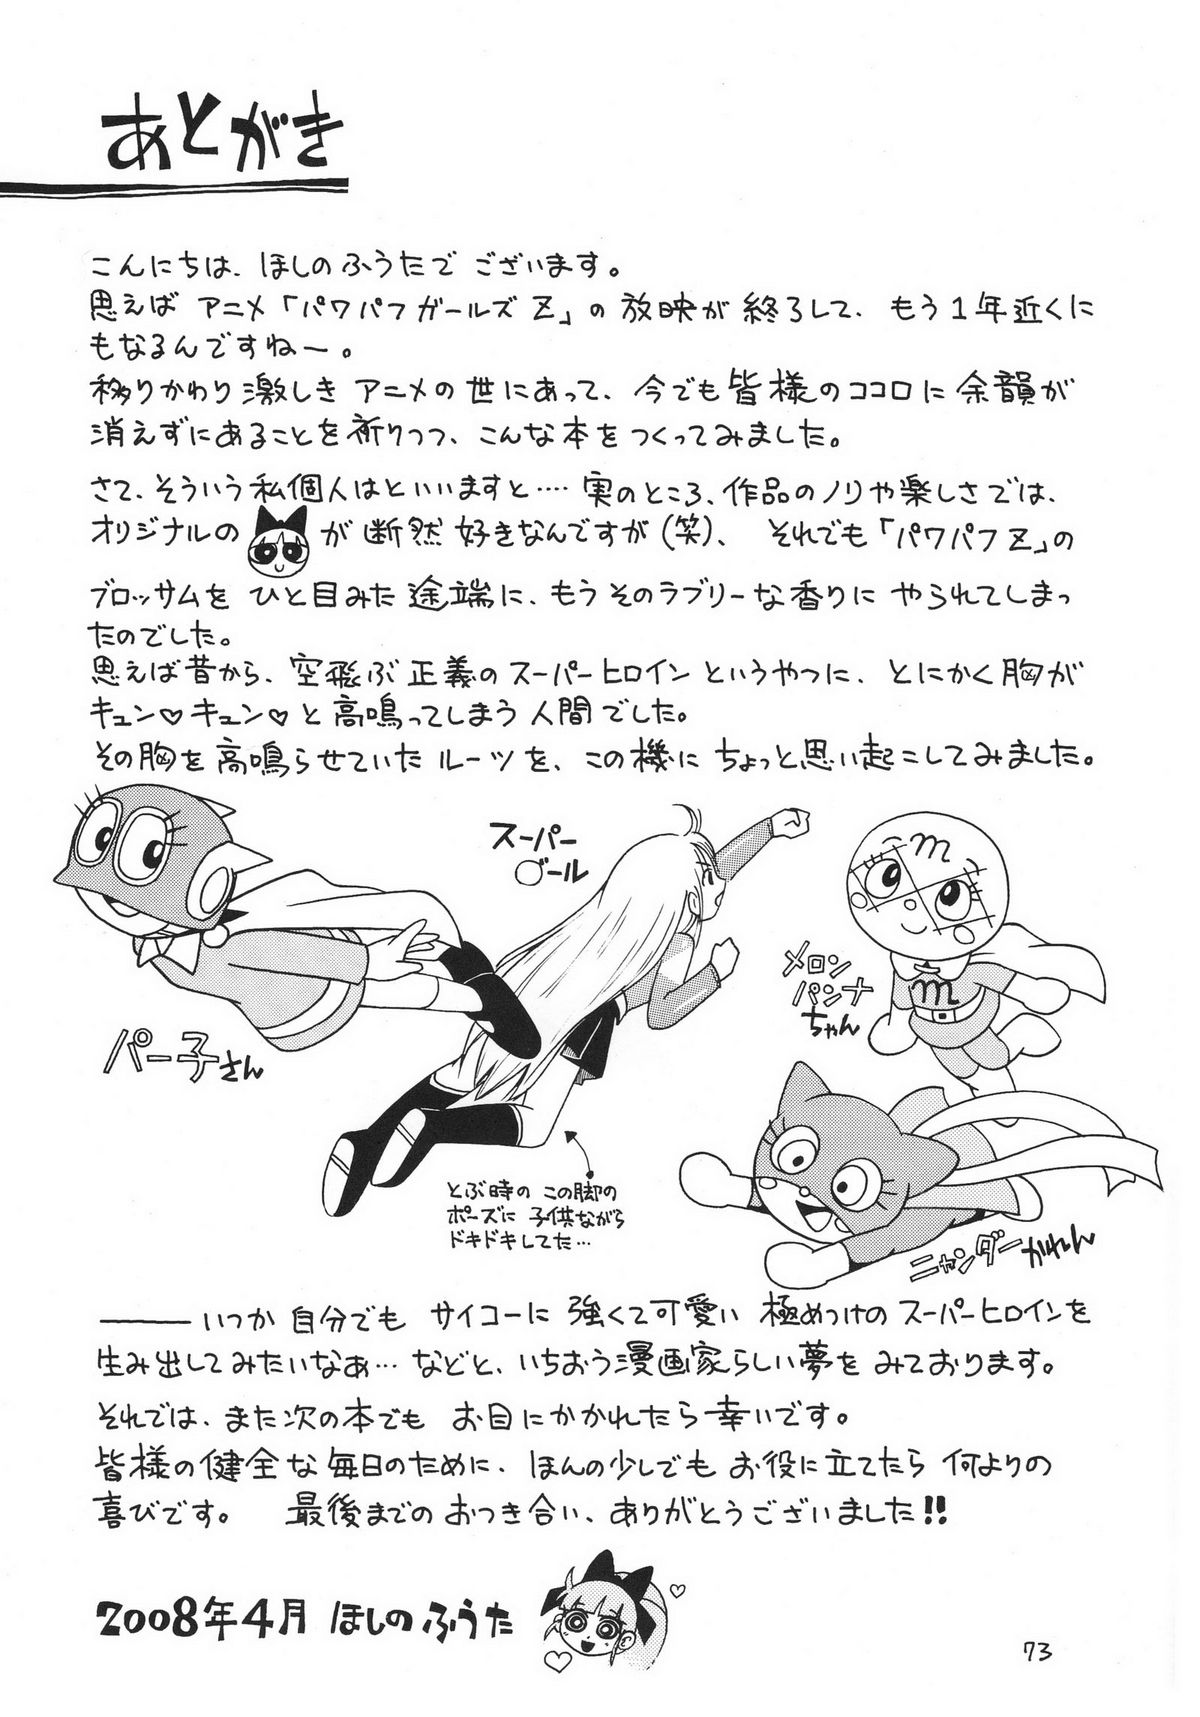 あとがき
こんにちは、ほしのふうたでございます。
思えばアニメ「パワパフガールズZ」の放映が終了して、もう1年近くに
もなるんですねー。
移りかわり激しきアニメの世にあって、今でも皆様のココロに余韻が
消えずにあることを祈りつつ、こんな本をつくってみました。
さて、そういう私個人はといいますと‥‥実のところ、作品のノリや楽しさでは、
オリジナルのが断然好きなんですが(笑)、それでも「パワパフZ」の
ブロッサムをひと目みた途端に、もうそのラブリーな香りにやられてしまっ
たのでした。
思えば昔から、空飛ぶ正義のスーパーヒロインというやつに、とにかく胸が
キュン♡キュン♡と高鳴ってしまう人間でした。
その胸を高鳴らせていたルーツを、この機にちょっと思い起こしてみました。
パー子さん
スーパー
○ール
メロン
パンナ
ちゃん
m
m
ニャンダーかれん
とぶ時のこの脚の
ポーズに子供ながら
ドキドキしてた…
――いつか自分でもサイコーに強くて可愛い極めつけのスーパーヒロインを
生み出してみたいなぁ…などと、いちおう漫画家らしい夢をみております。
それでは、また次の本でもお目にかかれたら幸いです。
皆様の健全な毎日のために、ほんの少しでもお役に立てたら何よりの
喜びです。 最後までのおつき合い、ありがとうございました!!
2008年4月 ほしのふうた
73